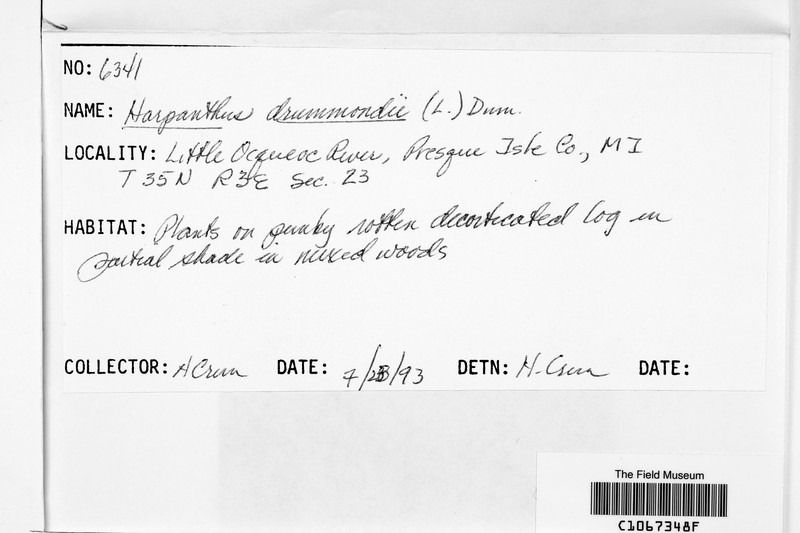 NO: 6341
NAME: Harpanthus drummondii (L.) Dum.
LOCALITY: Little Ocqueoc River, Presque Isle Co., MI
T 35N R3E Sec. 23
HABITAT: Plants on punky rotten decorticated log in
partial shade in mixed woods
COLLECTOR: H Crum DATE: 7/23/93 DETN: H. Crum DATE:
The Field Museum
C1067348F